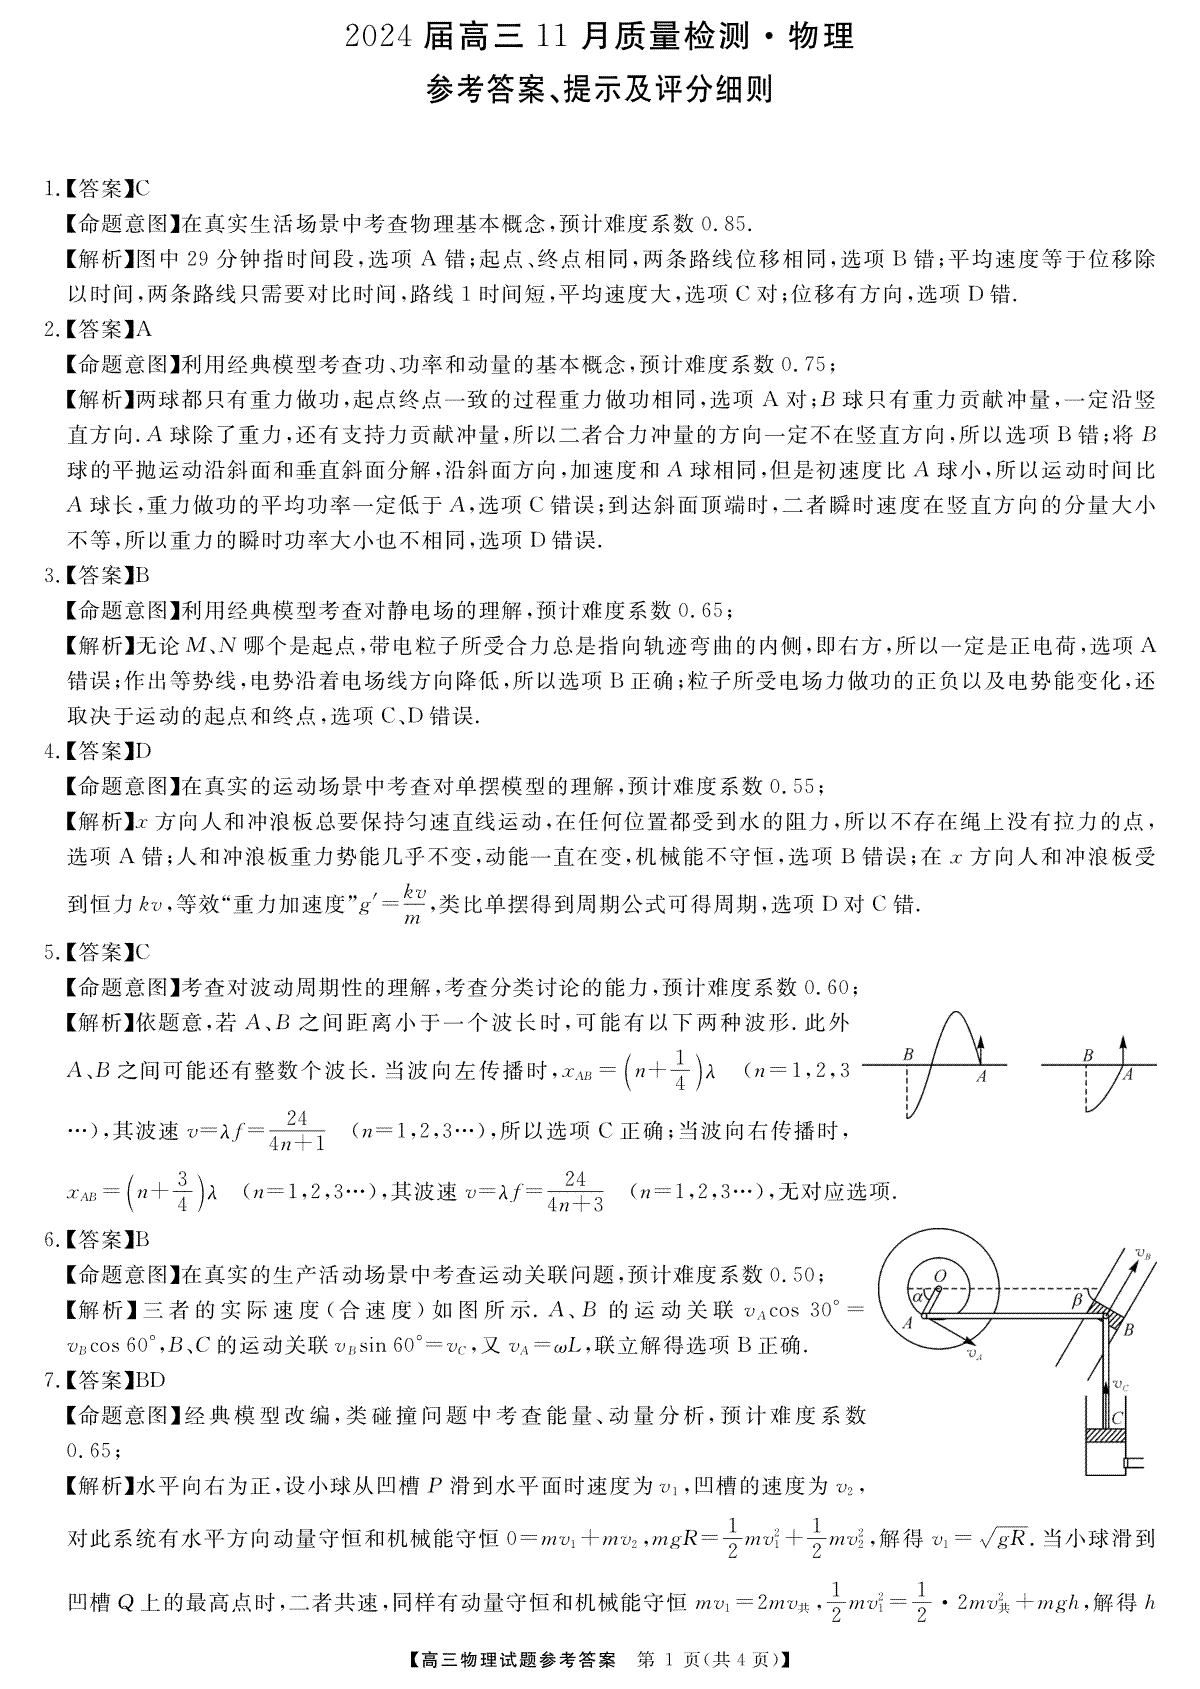 2024 届高三 11 月质量检测·物理
参考答案、提示及评分细则
1.【答案】C
【命题意图】在真实生活场景中考查物理基本概念,预计难度系数 0.85.
【解析】图中 29 分钟指时间段,选项 A 错;起点、终点相同,两条路线位移相同,选项 B 错;平均速度等于位移除
以时间,两条路线只需要对比时间,路线 1 时间短,平均速度大,选项 C 对;位移有方向,选项 D 错.
2.【答案】A
【命题意图】利用经典模型考查功、功率和动量的基本概念,预计难度系数 0.75;
【解析】两球都只有重力做功,起点终点一致的过程重力做功相同,选项 A 对;B 球只有重力贡献冲量,一定沿竖
直方向.A 球除了重力,还有支持力贡献冲量,所以二者合力冲量的方向一定不在竖直方向,所以选项 B 错;将 B
球的平抛运动沿斜面和垂直斜面分解,沿斜面方向,加速度和 A 球相同,但是初速度比 A 球小,所以运动时间比
A 球长,重力做功的平均功率一定低于 A,选项 C 错误;到达斜面顶端时,二者瞬时速度在竖直方向的分量大小
不等,所以重力的瞬时功率大小也不相同,选项 D 错误.
3.【答案】B
【命题意图】利用经典模型考查对静电场的理解,预计难度系数 0.65;
【解析】无论 M、N 哪个是起点,带电粒子所受合力总是指向轨迹弯曲的内侧,即右方,所以一定是正电荷,选项 A
错误;作出等势线,电势沿着电场线方向降低,所以选项 B 正确;粒子所受电场力做功的正负以及电势能变化,还
取决于运动的起点和终点,选项 C、D 错误.
4.【答案】D
【命题意图】在真实的运动场景中考查对单摆模型的理解,预计难度系数 0.55;
【解析】x 方向人和冲浪板总要保持匀速直线运动,在任何位置都受到水的阻力,所以不存在绳上没有拉力的点,
选项 A 错;人和冲浪板重力势能几乎不变,动能一直在变,机械能不守恒,选项 B 错误;在 x 方向人和冲浪板受
到恒力 kv,等效“重力加速度”g′=kv/m,类比单摆得到周期公式可得周期,选项 D 对 C 错.
5.【答案】C
【命题意图】考查对波动周期性的理解,考查分类讨论的能力,预计难度系数 0.60;
【解析】依题意,若 A、B 之间距离小于一个波长时,可能有以下两种波形. 此外
A、B 之间可能还有整数个波长. 当波向左传播时,x_AB=(n+1/4)λ (n=1,2,3
…),其波速 v=λf=24/(4n+1) (n=1,2,3…),所以选项 C 正确;当波向右传播时,
x_AB=(n+3/4)λ (n=1,2,3…),其波速 v=λf=24/(4n+3) (n=1,2,3…),无对应选项.
B
A
B
A
6.【答案】B
【命题意图】在真实的生产活动场景中考查运动关联问题,预计难度系数 0.50;
【解析】三者的实际速度(合速度)如图所示. A、B 的运动关联 v_A cos 30°=
v_B cos 60°,B、C 的运动关联 v_B sin 60°=v_C,又 v_A=ωL,联立解得选项 B 正确.
O
α
A
v_A
β
v_B
B
v_C
C
7.【答案】BD
【命题意图】经典模型改编,类碰撞问题中考查能量、动量分析,预计难度系数
0.65;
【解析】水平向右为正,设小球从凹槽 P 滑到水平面时速度为 v₁,凹槽的速度为 v₂,
对此系统有水平方向动量守恒和机械能守恒 0=mv₁+mv₂,mgR=1/2mv₁²+1/2mv₂²,解得 v₁=√gR. 当小球滑到
凹槽 Q 上的最高点时,二者共速,同样有动量守恒和机械能守恒 mv₁=2mv共,1/2mv₁²=1/2·2mv共²+mgh,解得 h
【高三物理试题参考答案 第 1 页(共 4 页)】